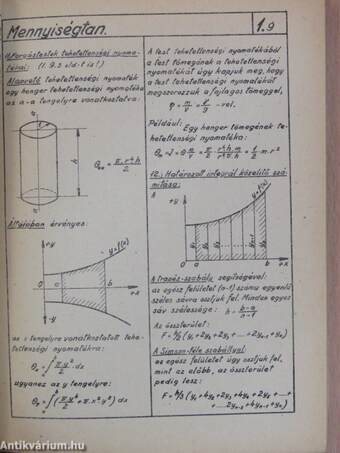 Mennyiségtan.
1.9
11. Forgástestek tehetetlenségi nyoma-
tékai: (1. 9.5 old:t is!)
Alapvető tehetetlenségi nyomaték
egy henger tehetetlenségi nyomatéka
az a-a tengelyre vonatkoztatva:
r
h
Θaa = π·r⁴·h / 2
Általában érvényes:
+y
y=f(x)
0
a
b
+x
-y
az x tengelyre vonatkoztatott tehe-
tetlenségi nyomatékra:
Θx = ∫ π·y⁴/2 · dx
ugyanez az y tengelyre:
Θy = ∫(π·y⁴/4 + π·x²·y²) dx
A test tehetetlenségi nyomatékából
a test tömegének a tehetetlenségi
nyomatékát úgy kapjuk meg, hogy
a test tehetetlenségi nyomatékát
megszorozzuk a fajlagos tömeggel,
ϱ = m/v = γ/g -vel.
Például:
Egy henger tömegének te-
hetetlenségi nyomatéka:
12. Határozott integrál közelítő szá-
mítása:
+y
y=f(x)
0
a
b
+x
A trapéz-szabály segítségével:
az egész felületet (n-1) számu egyenlő
széles sávra osztjuk fel. Minden egyes
sáv szélessége: h = b-a / n-1
Az összterület:
F = h/2 (y₁+2y₂+2y₃+...2yₙ₋₁+yₙ)
A Simson-féle szabállyal:
az egész felületet úgy osztjuk fel,
mint az előbb, az összterület
pedig lesz:
F = h/3 (y₁+4y₂+2y₃+4y₄+2y₅+....+
....+2yₙ₋₂+4yₙ₋₁+yₙ)
Antikvárium.hu